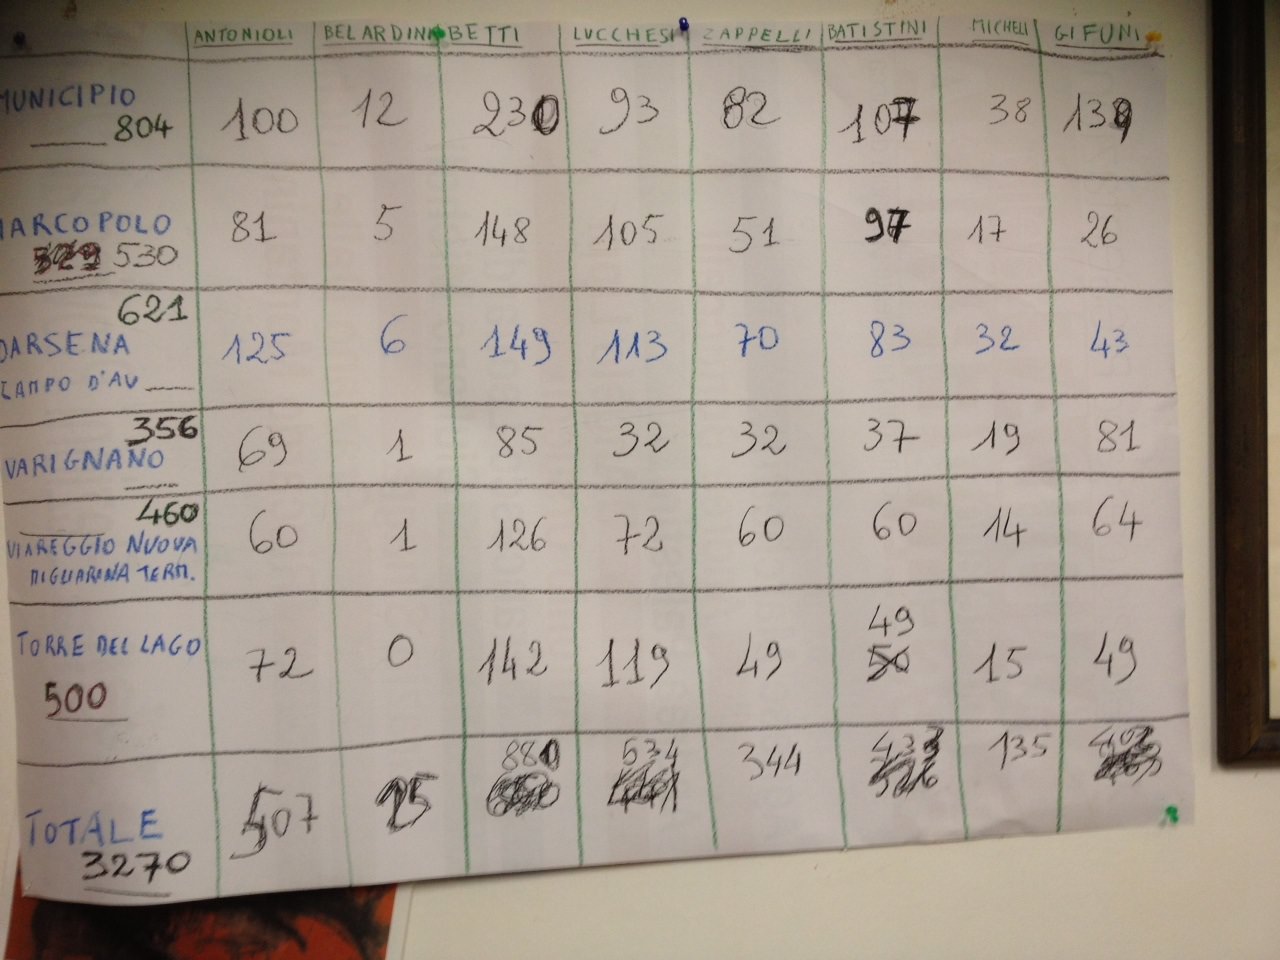 ANTONIOLI BELARDINI BETTI LUCCHESI ZAPPELLI BATISTINI MICHELI GIFUNI
MUNICIPIO
804 100 12 230 93 82 107 38 139
MARCO POLO 81 5 148 105 51 97 17 26
530
621
DARSENA 125 6 149 113 70 83 32 43
CAMPO D'AV
356
VARIGNANO 69 1 85 32 32 37 19 81
460
VIAREGGIO NUOVA 60 1 126 72 60 60 14 64
MIGLIARINA TERM.
49
TORRE DEL LAGO 72 0 142 119 49 50 15 49
500
880 534 344 433 135
TOTALE 507 25
3270